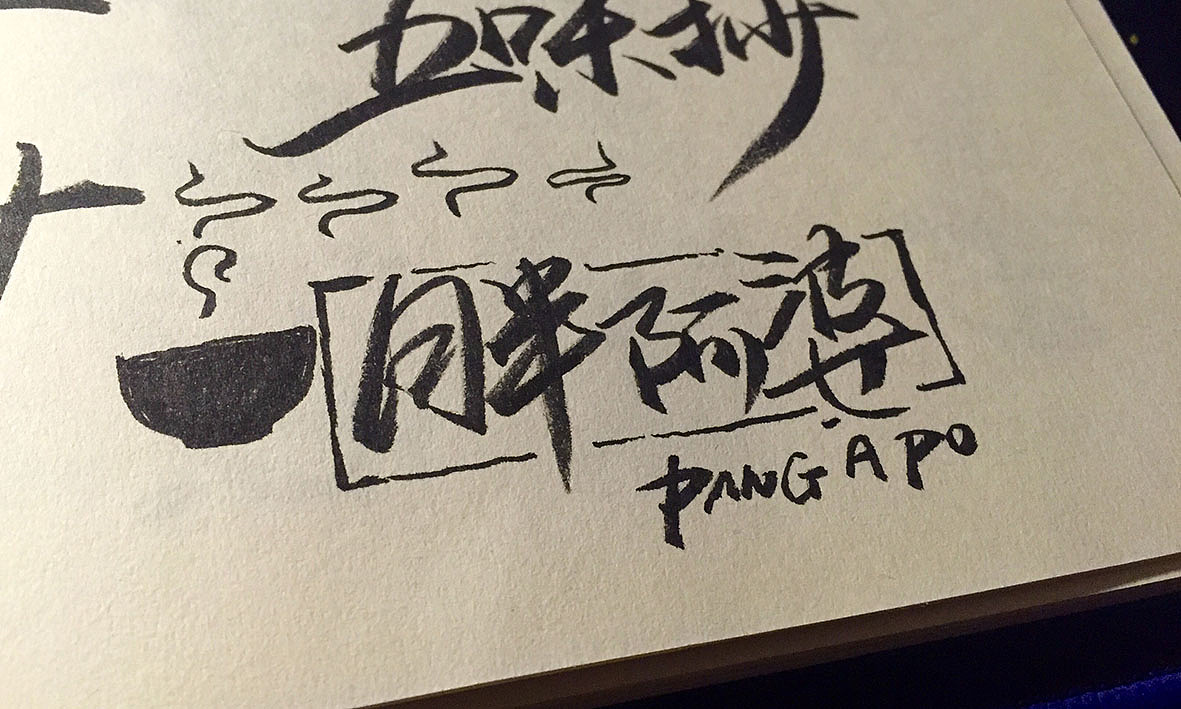 五味抄
胖阿婆
PANG A PO